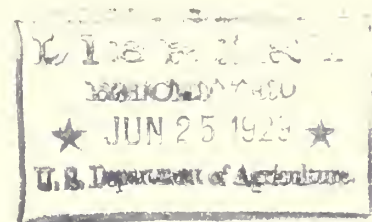 LIBRARY
RECEIVED
★ JUN 25 1923 ★
U. S. Department of Agriculture